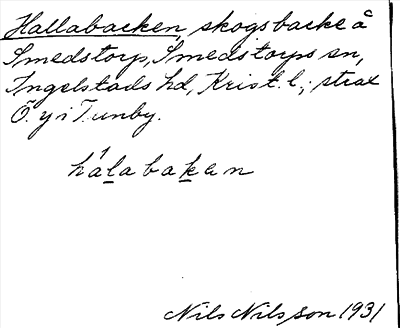 Hallabacken, skogsbacke å
Smedstorp, Smedstorps sn,
Ingelstads hd, Krist. l.; strax
Ö. y i Tunby.
hálabakan
Nils Nilsson 1931